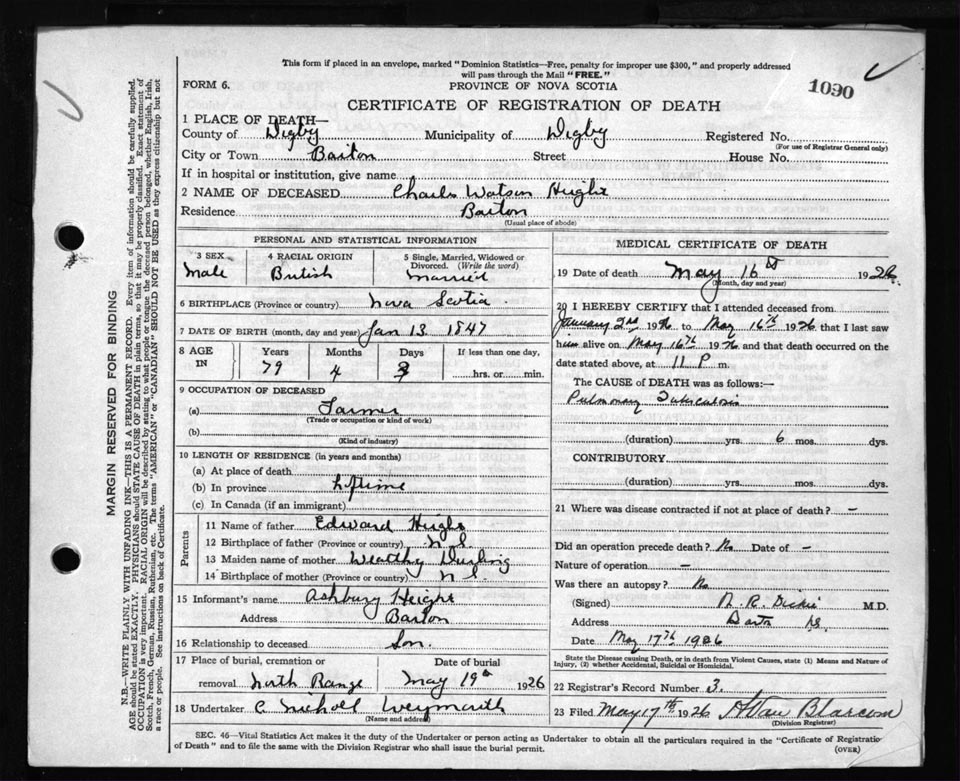 This form if placed in an envelope, marked "Dominion Statistics—Free, penalty for improper use $300," and properly addressed
will pass through the Mail "FREE."
1090
FORM 6.
PROVINCE OF NOVA SCOTIA
CERTIFICATE OF REGISTRATION OF DEATH
1 PLACE OF DEATH—
County of Digby Municipality of Digby Registered No.
(For use of Registrar General only)
City or Town Barton Street House No.
If in hospital or institution, give name
2 NAME OF DECEASED Charles Watson Height
Residence Barton
(Usual place of abode)
PERSONAL AND STATISTICAL INFORMATION
3 SEX 4 RACIAL ORIGIN 5 Single, Married, Widowed or
Divorced. (Write the word)
Male British Married
6 BIRTHPLACE (Province or country) Nova Scotia
7 DATE OF BIRTH (month, day and year) Jan 13 1847
8 AGE IN Years Months Days If less than one day,
79 4 3 hrs. or min.
9 OCCUPATION OF DECEASED
(a) Farmer
(Trade or occupation or kind of work)
(b)
(Kind of industry)
10 LENGTH OF RESIDENCE (in years and months)
(a) At place of death
(b) In province Lifetime
(c) In Canada (if an immigrant)
Parents
11 Name of father Edward Height
12 Birthplace of father (Province or country) N S.
13 Maiden name of mother
14 Birthplace of mother (Province or country) N S.
15 Informant's name Ashbury Height
Address Barton
16 Relationship to deceased Son.
17 Place of burial, cremation or Date of burial
removal North Range May 19th 1926
18 Undertaker C Nicholl Weymouth
(Name and address)
MEDICAL CERTIFICATE OF DEATH
19 Date of death May 16th 1926
(Month, day and year)
20 I HEREBY CERTIFY that I attended deceased from
January 2nd 1926 to May 16th 1926, that I last saw
him alive on May 16th 1926 and that death occurred on the
date stated above, at 11 P m.
The CAUSE of DEATH was as follows:—
Pulmonary Tuberculosis
(duration) yrs. 6 mos. dys.
CONTRIBUTORY
(duration) yrs. mos. dys.
21 Where was disease contracted if not at place of death? –
Did an operation precede death? No Date of –
Nature of operation –
Was there an autopsy? No
(Signed) R. Dickie M.D.
Address Barton NS.
Date May 17th 1926
State the Disease causing Death, or in death from Violent Causes, state (1) Means and Nature of
Injury, (2) whether Accidental, Suicidal or Homicidal.
22 Registrar's Record Number 3.
23 Filed May 17th 1926 H Van Blarcom
(Division Registrar)
SEC. 46—Vital Statistics Act makes it the duty of the Undertaker or person acting as Undertaker to obtain all the particulars required in the "Certificate of Registration
of Death" and to file the same with the Division Registrar who shall issue the burial permit.
(OVER)
MARGIN RESERVED FOR BINDING
N.B.—WRITE PLAINLY WITH UNFADING INK—THIS IS A PERMANENT RECORD. Every item of information should be carefully supplied.
AGE should be stated EXACTLY. PHYSICIANS should STATE CAUSE OF DEATH in plain terms, so that it may be properly classified. Exact statement of
OCCUPATION is very important. RACIAL ORIGIN will be described by stating to what people or tongue the deceased person belonged, whether English, Irish,
Scotch, French, German, Russian, Ruthenian, etc. The terms "AMERICAN" or "CANADIAN" SHOULD NOT BE USED as they express citizenship but not
a race or people. See instructions on back of Certificate.